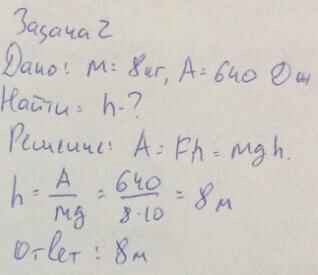 Задача 2
Дано: m = 8 кг, A = 640 Дж
Найти = h - ?
Решение: A = Fh = mgh.
h = A/mg = 640/8·10 = 8 м
Ответ: 8 м